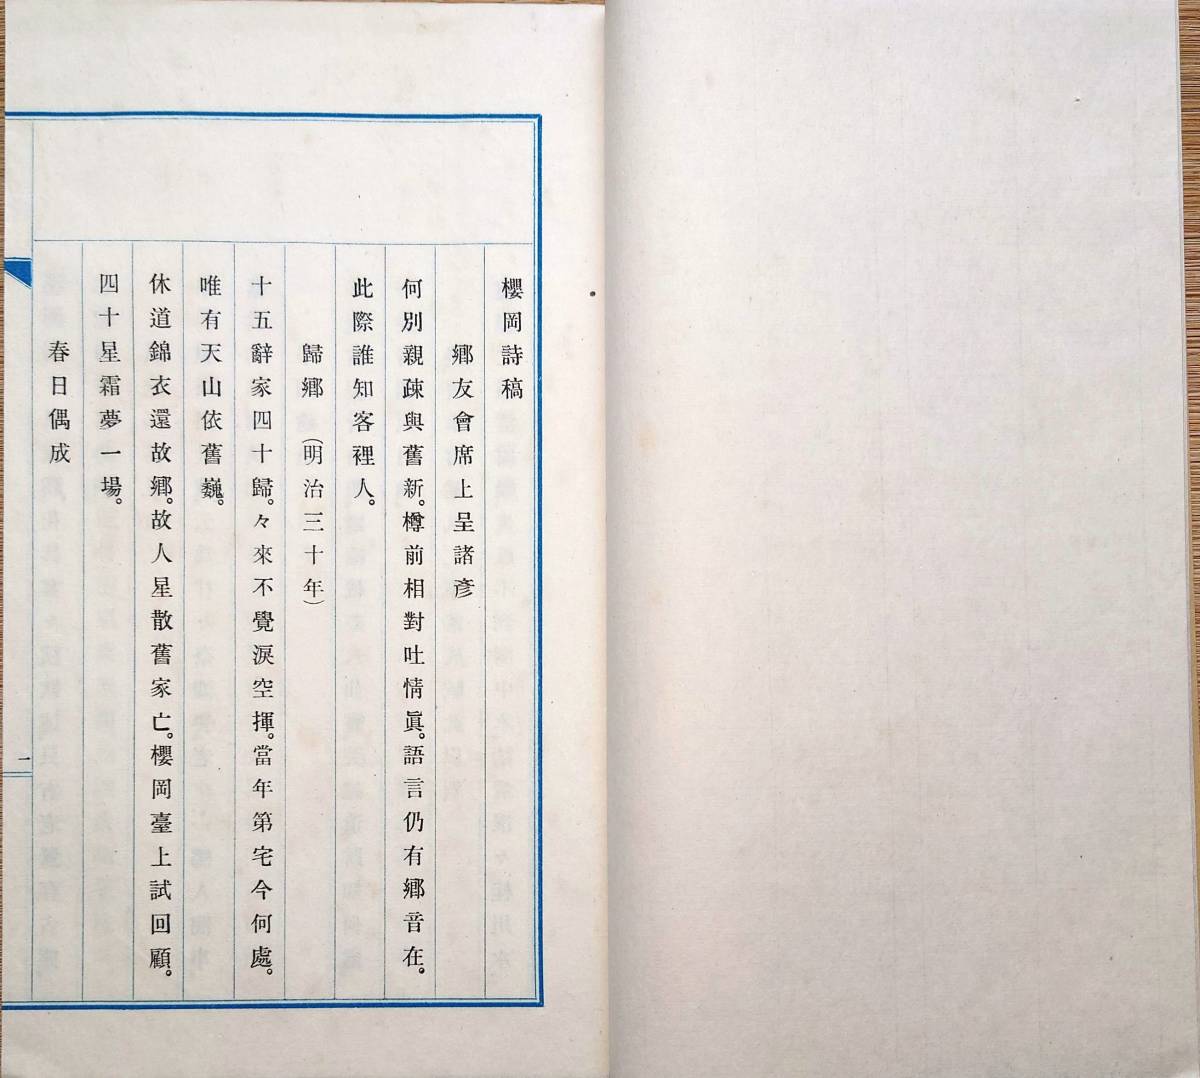 櫻岡詩稿
鄉友會席上呈諸彥
何別親疎與舊新。樽前相對吐情眞。語言仍有鄉音在。
此際誰知客裡人。
歸鄉（明治三十年）
十五辭家四十歸。々來不覺淚空揮。當年第宅今何處。
唯有天山依舊巍。
休道錦衣還故鄉。故人星散舊家亡。櫻岡臺上試回顧。
四十星霜夢一場。
春日偶成
一